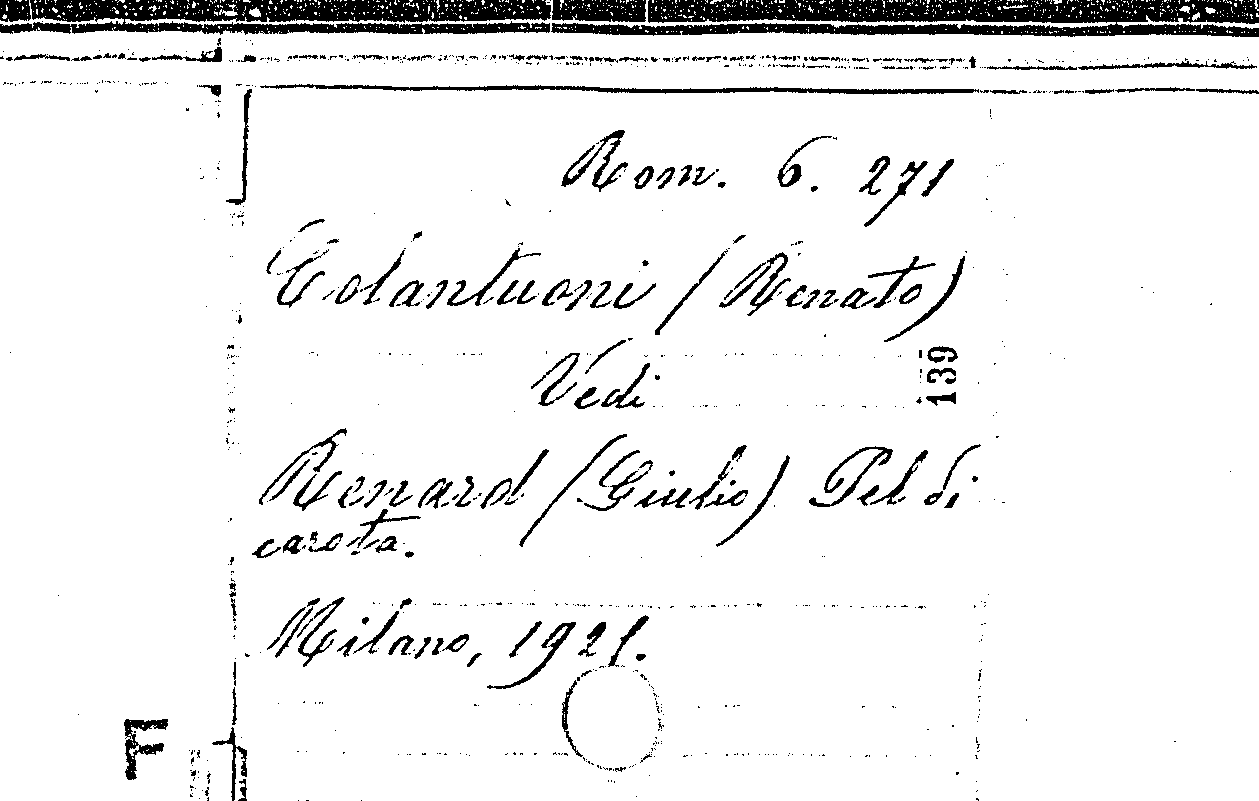 Rom. 6. 271
Colantuoni (Renato)
Vedi
139
Renard (Giulio) Pel di
carota.
Milano, 1921.
F